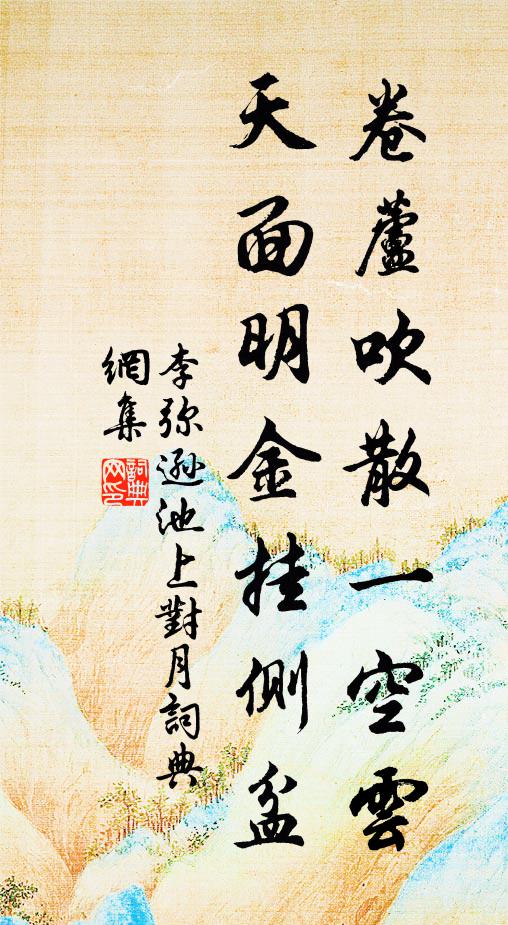 卷蘆吹散一空雲
天面明金挂側盆
李弥遜池上對月詞典
網集
詞典網印